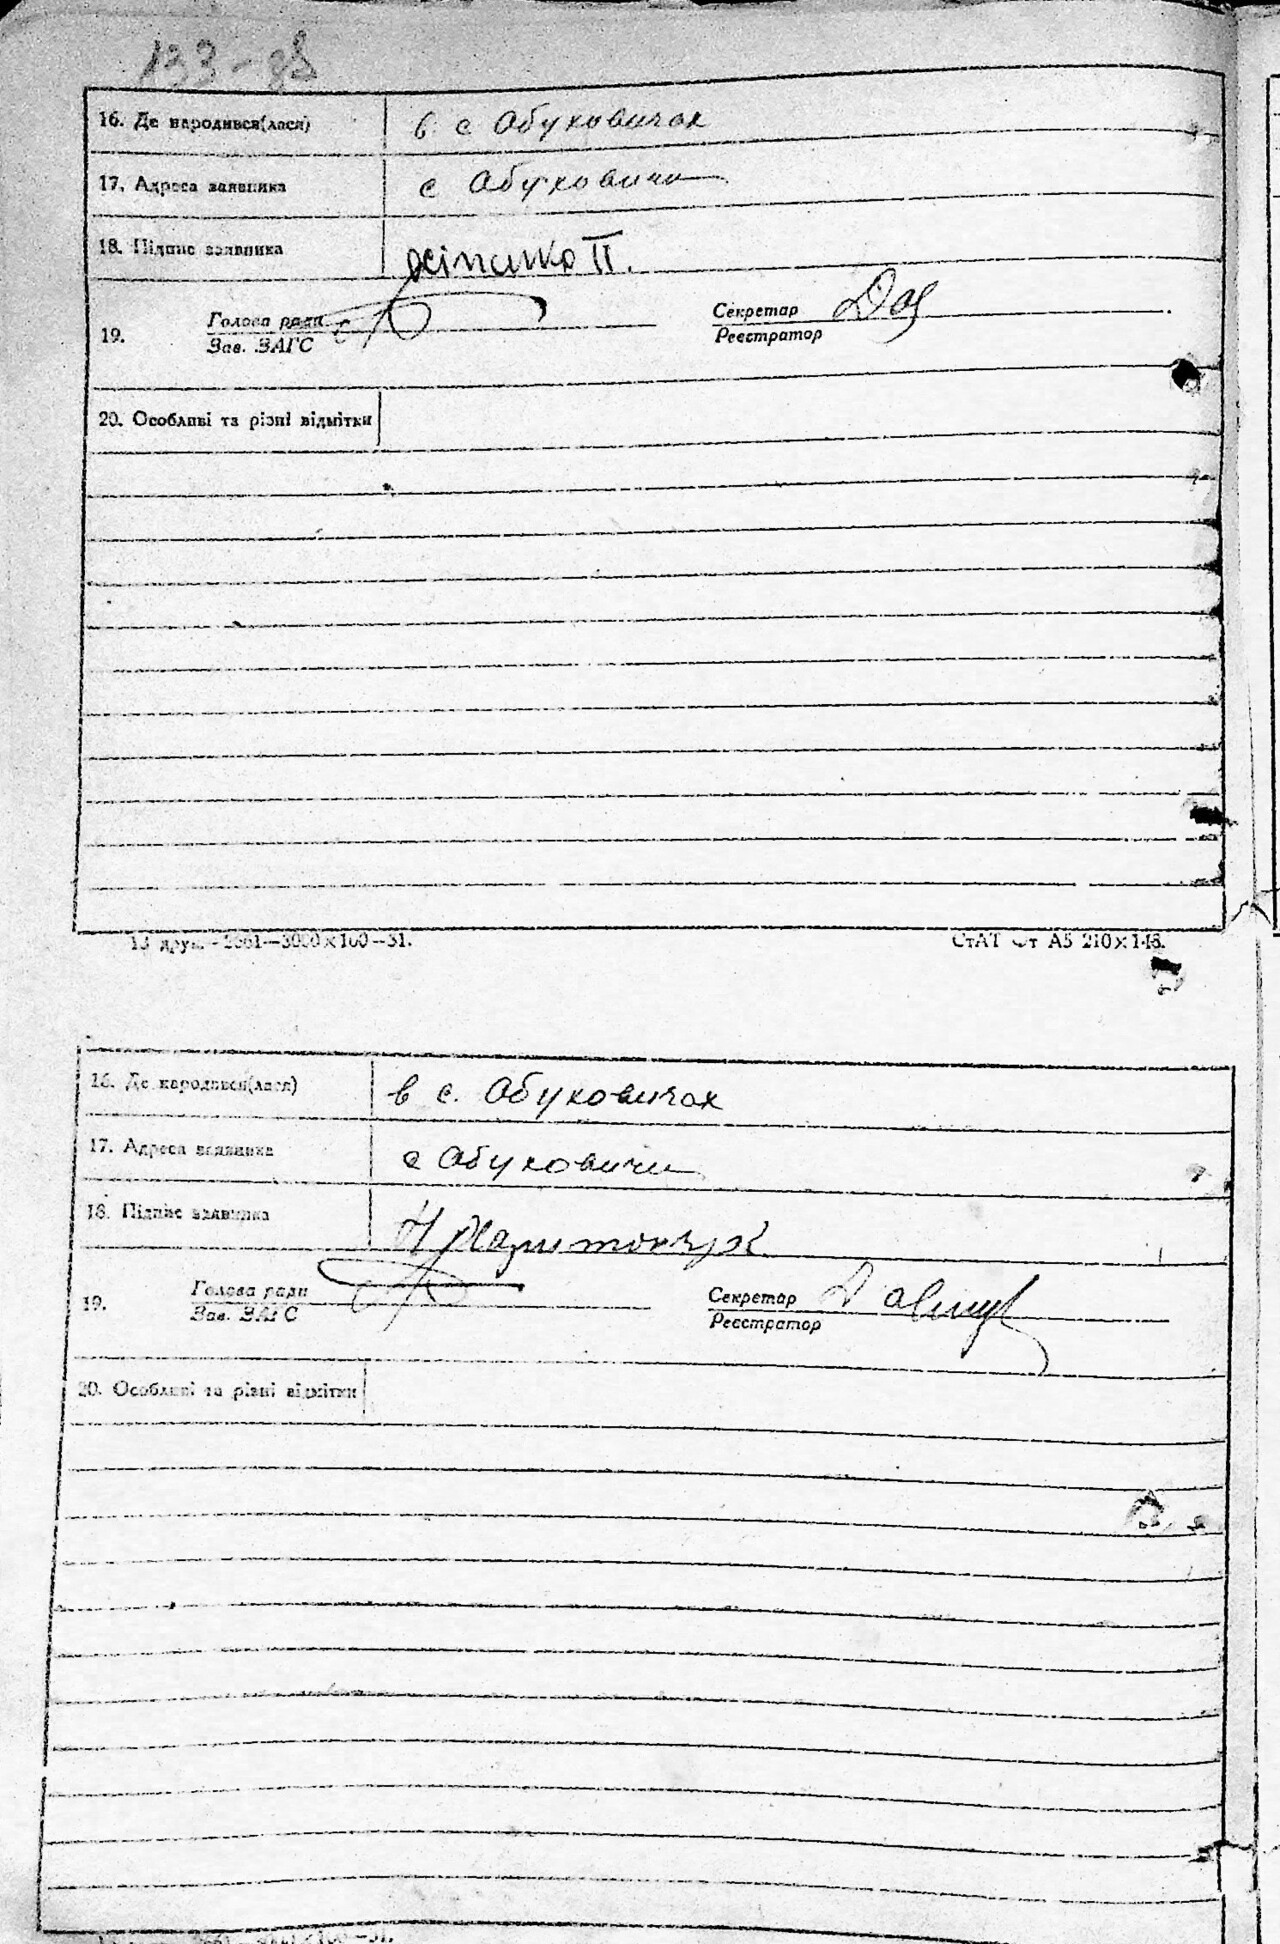 133-88
16. Де народився(лася) в с Обуховичах
17. Адреса заявника с Обуховичи
18. Підпис заявника Осіпенко П.
19. Голова ради Секретар Дав
Зав. ЗАГС Реєстратор
20. Особливі та різні відмітки
13 друк.-2661-3000×100-31. СтАТ Фт А5 210×148.
16. Де народився(лася) в с. Обуховичах
17. Адреса заявника с Обуховичи
18. Підпис заявника
19. Голова ради Секретар
Зав. ЗАГС Реєстратор
20. Особливі та різні відмітки